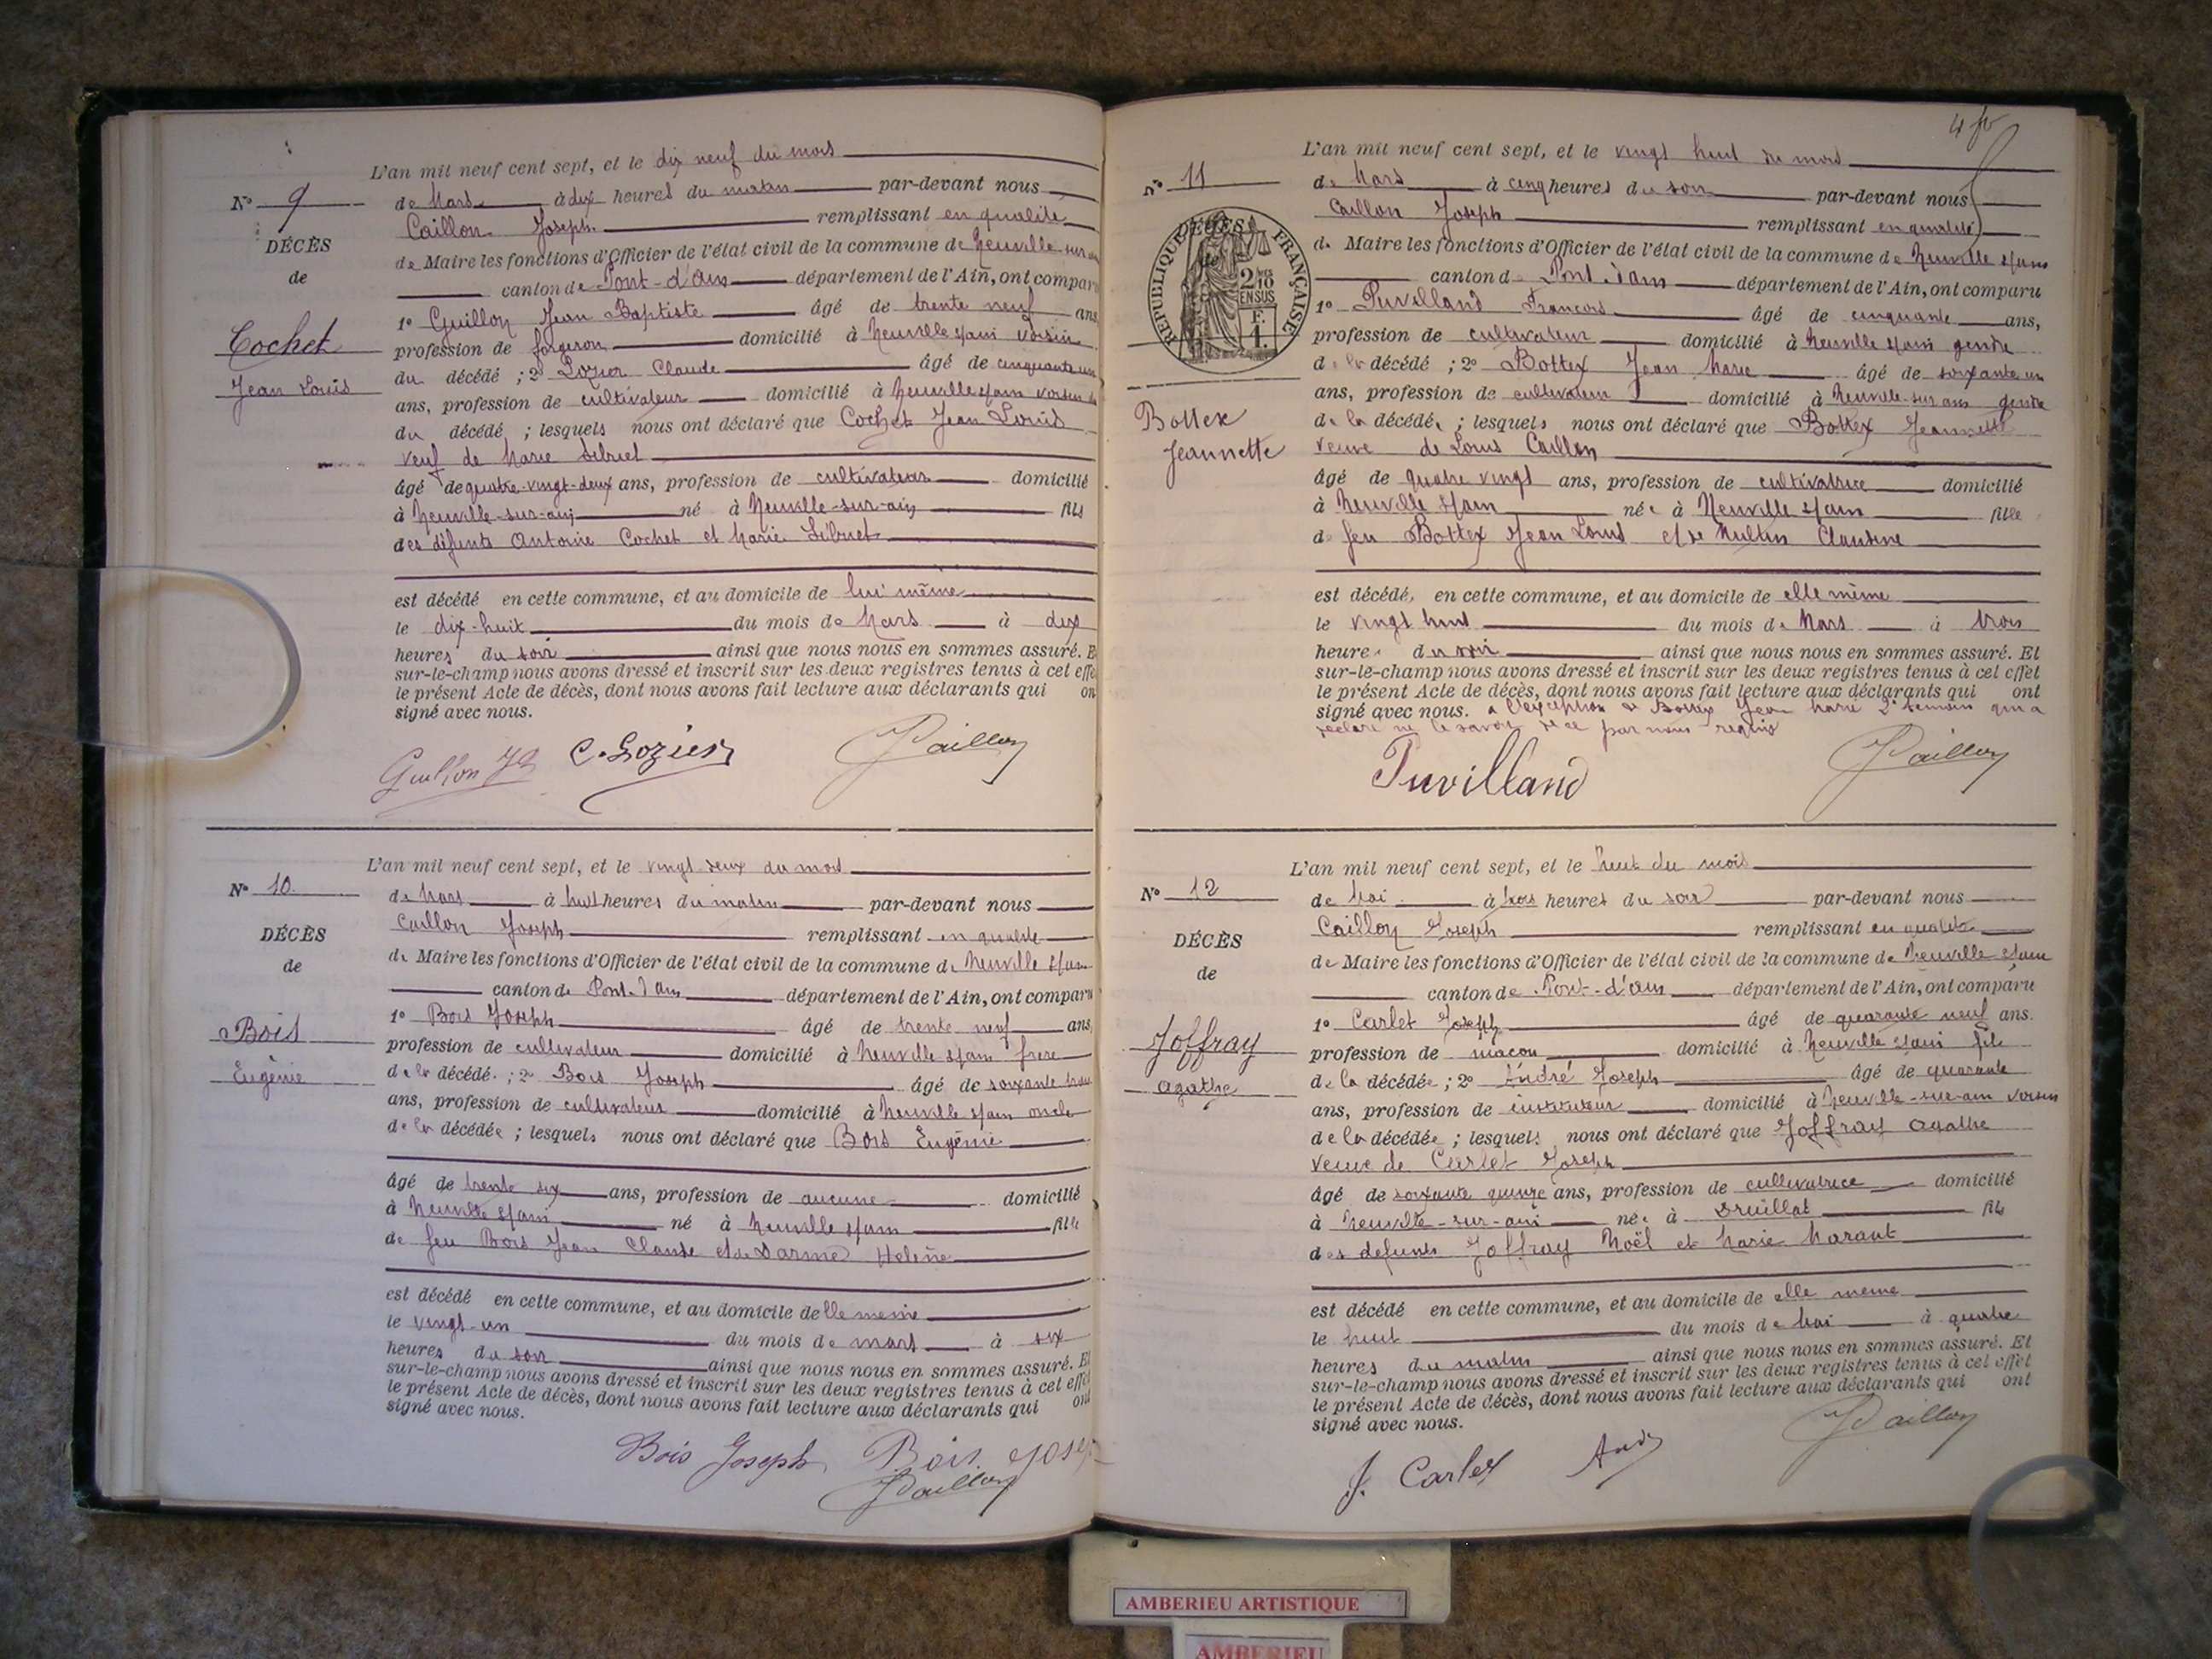 L'an mil neuf cent sept, et le dix neuf du mois
N° 9
de Mars à dix heures du matin par-devant nous
Caillon Joseph remplissant en qualité
DÉCÈS
de Maire les fonctions d'Officier de l'état civil de la commune de Neuville-sur
de
canton de Pont-d'ain département de l'Ain, ont comparu
1° Guillon Jean Baptiste âgé de trente neuf ans
Cochet
profession de forgeron domicilié à Neuville s/ain voisin
du décédé ; 2° Lozier Claude âgé de cinquante un
Jean Louis
ans, profession de cultivateur domicilié à Neuville s/ain voisin
du décédé ; lesquels nous ont déclaré que Cochet Jean Louis
veuf de Marie
âgé de quatre-vingt-deux ans, profession de cultivateur domicilié
à Neuville-sur-ain né à Neuville-sur-ain fils
des défunts Antoine Cochet et Marie
est décédé en cette commune, et au domicile de lui même
le dix-huit du mois de Mars à dix
heures du soir ainsi que nous nous en sommes assuré. E
sur-le-champ nous avons dressé et inscrit sur les deux registres tenus à cet effe
le présent Acte de décès, dont nous avons fait lecture aux déclarants qui on
signé avec nous.
Guillon JB C. Lozier JCaillon
L'an mil neuf cent sept, et le vingt deux du mois
N° 10
de Mars à huit heures du matin par-devant nous
Caillon Joseph remplissant en qualité
DÉCÈS
de Maire les fonctions d'Officier de l'état civil de la commune de Neuville s/ain
de
canton de Pont-d'ain département de l'Ain, ont comparu
1° Bois Joseph âgé de trente neuf ans,
Bois
profession de cultivateur domicilié à Neuville s/ain frere
de la décédé. ; 2° Bois Joseph âgé de soixante trois
Eugénie
ans, profession de cultivateur domicilié à Neuville s/ain oncle
de la décédée ; lesquels nous ont déclaré que Bois Eugénie
âgé de trente six ans, profession de aucune domicilié
à Neuville s/ain né à Neuville s/ain fille
de feu Bois Jean Claude et de Darme Helene
est décédé en cette commune, et au domicile delle meme
le vingt-un du mois de mars à six
heures du soir ainsi que nous nous en sommes assuré. Et
sur-le-champ nous avons dressé et inscrit sur les deux registres tenus à cet effet
le présent Acte de décès, dont nous avons fait lecture aux déclarants qui ont
signé avec nous.
Bois Joseph Bois Josep
JCaillon
4
L'an mil neuf cent sept, et le vingt huit du mois
N° 11
de Mars à cinq heures du soir par-devant nous
Caillon Joseph remplissant en qualité
DÉCÈS
de
RÉPUBLIQUE FRANÇAISE
2/10 EN SUS
F. 1.
de Maire les fonctions d'Officier de l'état civil de la commune de Neuville s/ain
canton de Pont-d'ain département de l'Ain, ont comparu
1° Puvilland Francois âgé de cinquante ans,
profession de cultivateur domicilié à Neuville s/ain gendre
de la décédé ; 2° Bottex Jean Marie âgé de soixante un
ans, profession de cultivateur domicilié à Neuville-sur-ain gendre
Bottex
de la décédée ; lesquels nous ont déclaré que Bottex Jeannette
Jeannette
veuve de Louis Caillon
âgé de quatre vingt ans, profession de cultivatrice domicilié
à Neuville s/ain née à Neuville s/ain fille
de feu Bottex Jean Louis et de Claudine
est décédé, en cette commune, et au domicile de elle même
le vingt huit du mois de Mars à trois
heures du soir ainsi que nous nous en sommes assuré. Et
sur-le-champ nous avons dressé et inscrit sur les deux registres tenus à cet effet
le présent Acte de décès, dont nous avons fait lecture aux déclarants qui ont
signé avec nous. a l'exception de Bottex Jean Marie 2e temoin qui a
declaré ne le savoir de ce par nous requis
Puvilland JCaillon
L'an mil neuf cent sept, et le huit du mois
N° 12
de Mai à trois heures du soir par-devant nous
Caillon Joseph remplissant en qualité
DÉCÈS
de Maire les fonctions d'Officier de l'état civil de la commune de Neuville s/ain
de
canton de Pont-d'ain département de l'Ain, ont comparu
1° Carlet Joseph âgé de quarante neuf ans.
Joffray
profession de maçon domicilié à Neuville s/ain fils
de la décédée ; 2° André Joseph âgé de quarante
agathe
ans, profession de instituteur domicilié à Neuville-sur-ain voisin
de la décédée ; lesquels nous ont déclaré que Joffray agathe
veuve de Carlet Joseph
âgé de soixante quinze ans, profession de cultivatrice domicilié
à Neuville-sur-ain née à Druillat fille
des defunts Joffray Noël et Marie Marant
est décédé en cette commune, et au domicile de elle meme
le huit du mois de Mai à quatre
heures du matin ainsi que nous nous en sommes assuré. Et
sur-le-champ nous avons dressé et inscrit sur les deux registres tenus à cet effet
le présent Acte de décès, dont nous avons fait lecture aux déclarants qui ont
signé avec nous.
J. Carlet JCaillon
AMBERIEU ARTISTIQUE
AMBERIEU